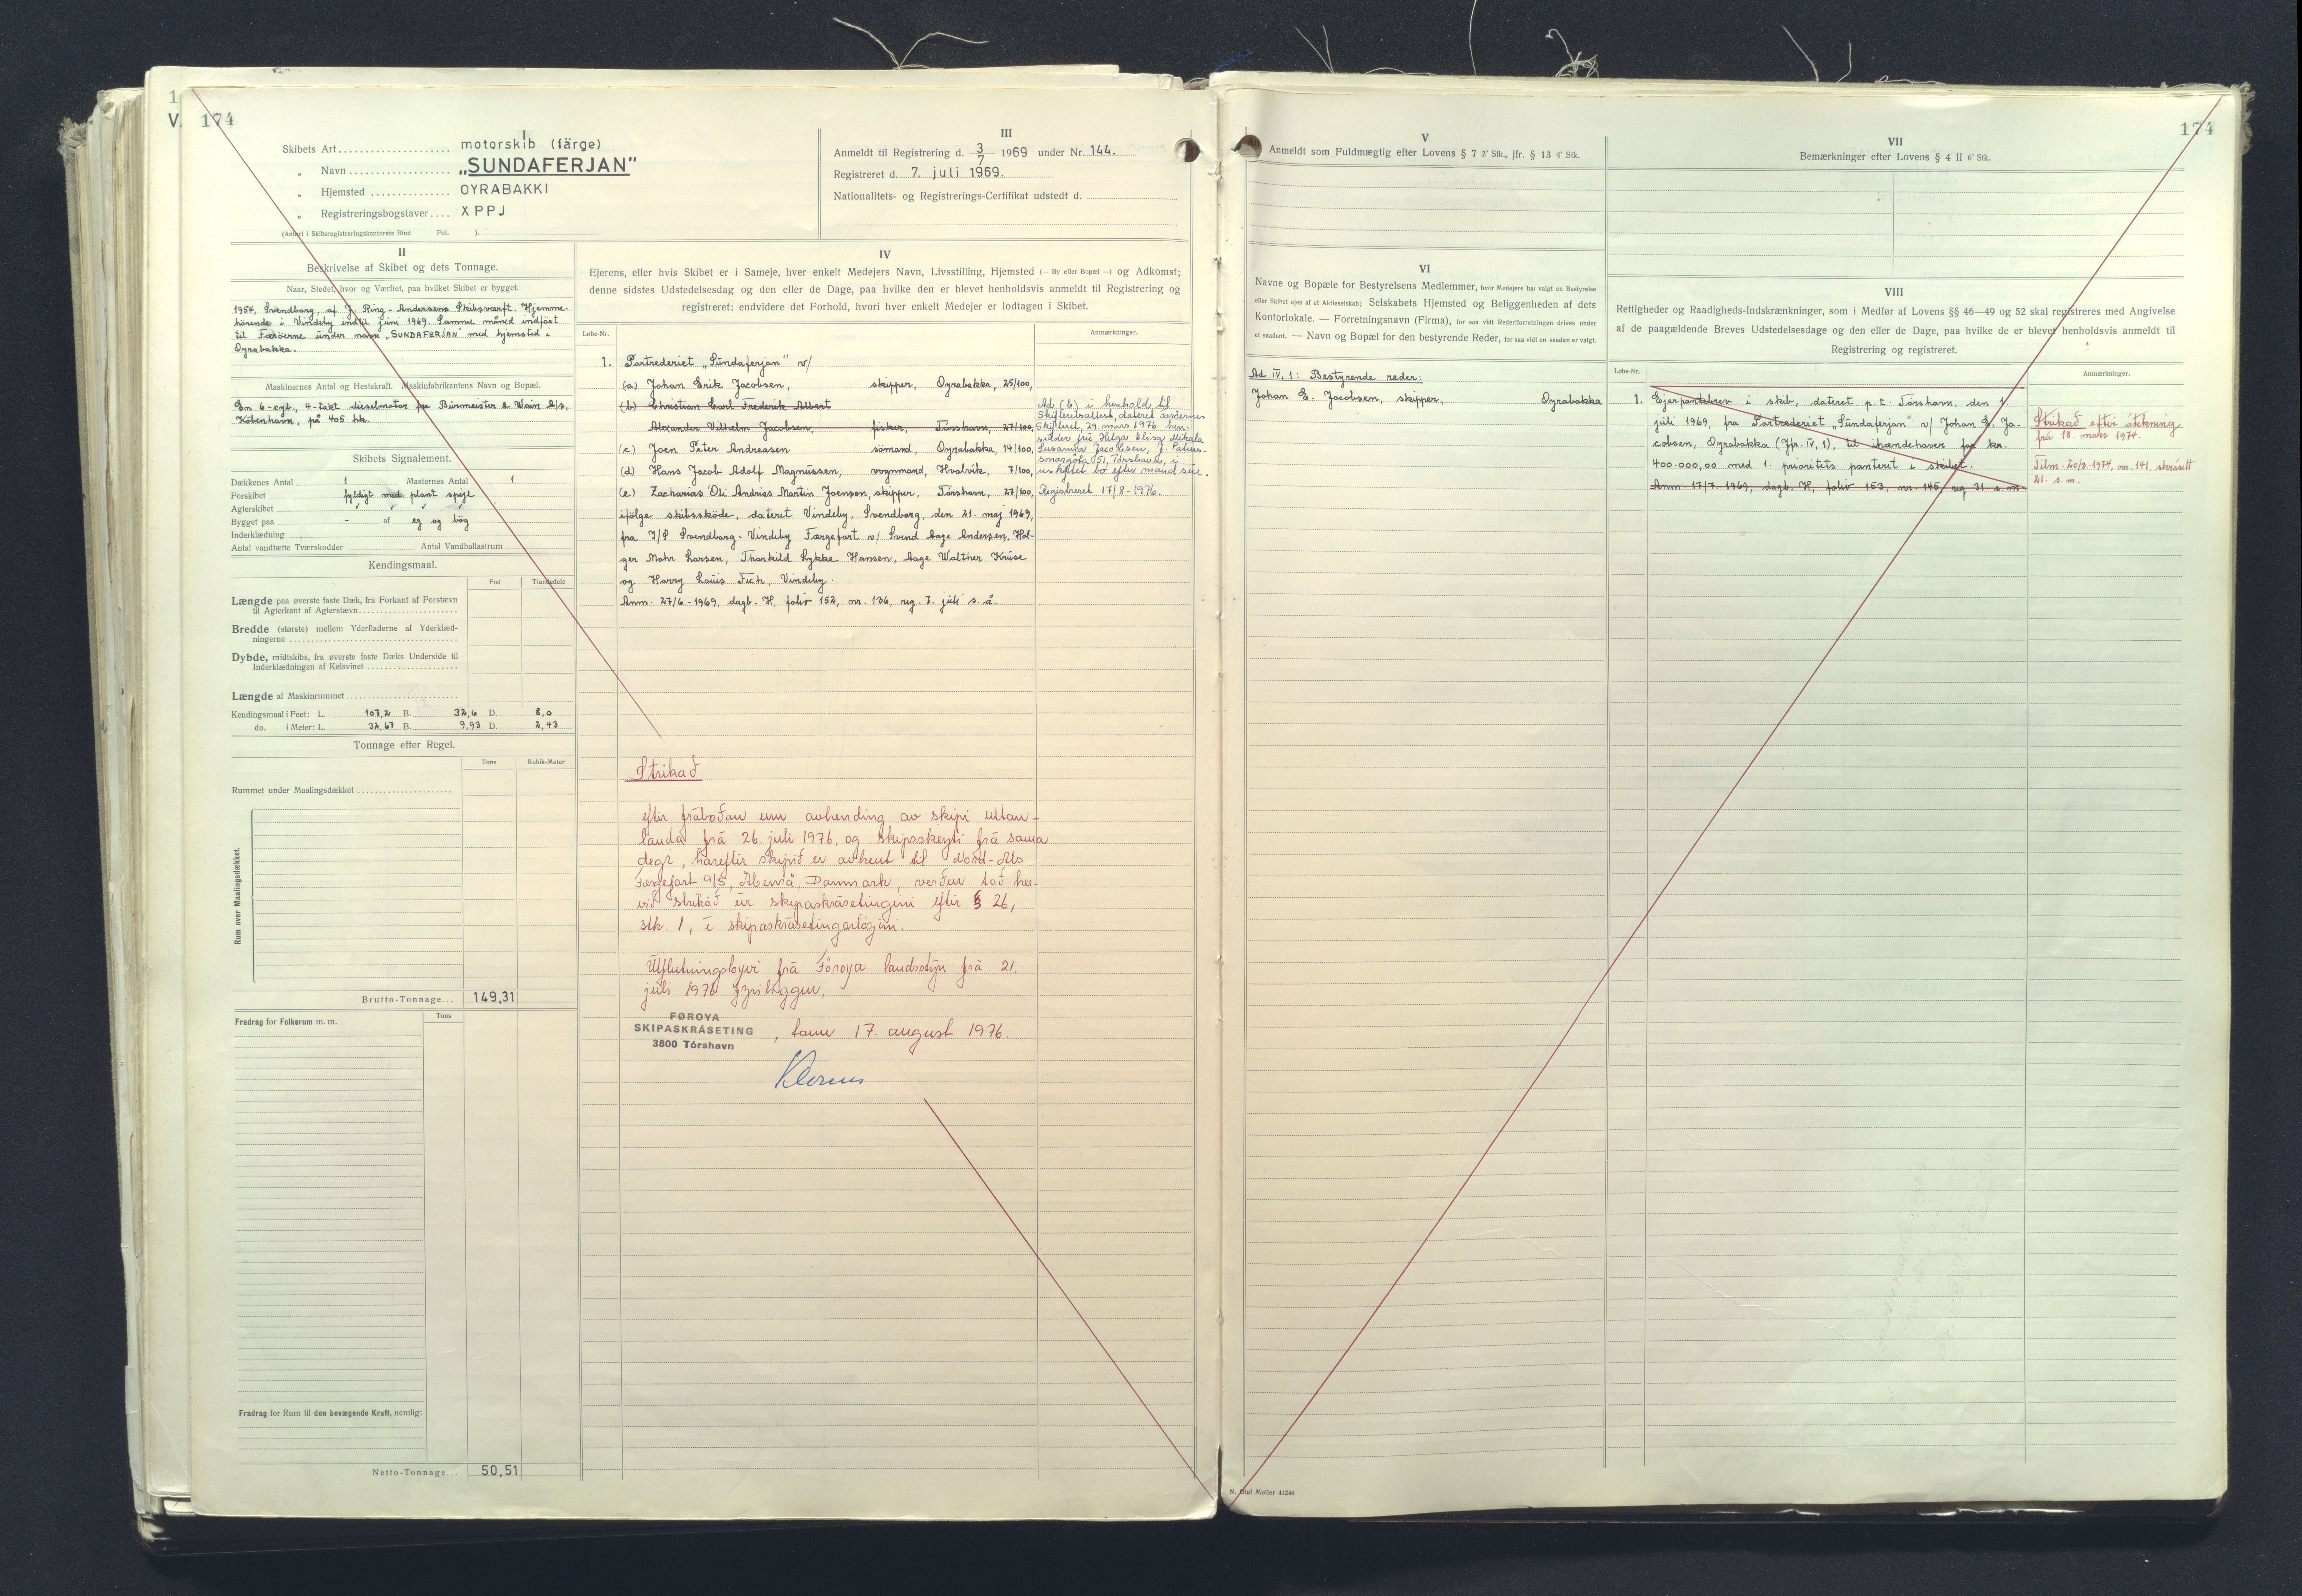 174
I
Skibets Art motorskib (färge)
" Navn „SUNDAFERJAN"
" Hjemsted OYRABAKKI
" Registreringsbogstaver XPPJ
(Anført i Skibsregistreringskontorets Bind Fol. ).
III
Anmeldt til Registrering d. 3/7 1969 under Nr. 144.
Registreret d. 7. juli 1969.
Nationalitets- og Registrerings-Certifikat udstedt d.
II
Beskrivelse af Skibet og dets Tonnage.
Naar, Stedet, hvor og Værftet, paa hvilket Skibet er bygget.
1954, Svendborg, af J. Ring-Andersens Skibsværft. Hjemme-
hörende i Vindeby indtil juni 1969. Samme måned indfört
til Færöerne under navn „SUNDAFERJAN" med hjemsted i
Oyrabakka.
Maskinernes Antal og Hestekraft. Maskinfabrikantens Navn og Bopæl.
En 6-cyl., 4-takt dieselmotor fra Burmeister & Wain A/S,
Köbenhavn, på 405 hk.
Skibets Signalement.
Dækkenes Antal 1 Masternes Antal 1
Forskibet fyldigt med plant spejl
Agterskibet
Bygget paa - af eg og bög
Inderklædning
Antal vandtætte Tværskodder Antal Vandballastrum
Kendingsmaal.
Fod Tiendedele
Længde paa øverste faste Dæk, fra Forkant af Forstævn
til Agterkant af Agterstævn
Bredde (største) mellem Yderfladerne af Yderklæd-
ningerne
Dybde, midtskibs, fra øverste faste Dæks Underside til
Inderklædningen af Kølsvinet
Længde af Maskinrummet
Kendingsmaal i Feet: L. 107,2 B. 32,6 D. 8,0
do. i Meter: L. 32,67 B. 9,93 D. 2,43
Tonnage efter Regel.
Tons Kubik-Meter
Rummet under Maalingsdækket
Rum over Maalingsdækket.
Brutto-Tonnage... 149,31
Fradrag for Folkerum m. m.
Tons
Fradrag for Rum til den bevægende Kraft, nemlig:
Netto-Tonnage... 50,51
IV
Ejerens, eller hvis Skibet er i Sameje, hver enkelt Medejers Navn, Livsstilling, Hjemsted (— By eller Bopæl —) og Adkomst;
denne sidstes Udstedelsesdag og den eller de Dage, paa hvilke den er blevet henholdsvis anmeldt til Registrering og
registreret: endvidere det Forhold, hvori hver enkelt Medejer er lodtagen i Skibet.
Løbe-Nr.
Anmærkninger.
1. Partrederiet „Sundaferjan" v/
(a) Johan Erik Jacobsen, skipper, Oyrabakka, 25/100,
(b) Christian Carl Frederik Albert
Alexander Vilhelm Jacobsen, fisker, Tórshavn, 27/100,
(c) Joen Peter Andreasen sömand, Oyrabakka, 14/100,
(d) Hans Jacob Adolf Magnussen, vognmand, Hvalvík, 7/100,
(e) Zacharias Óli Andrias Martin Joensen, skipper, Tórshavn, 27/100,
ifölge skibsskøde, dateret Vindeby, Svendborg, den 21. maj 1969,
fra I/S Svendborg-Vindeby Færgefart v/ Svend Aage Andersen, Hol-
ger Mohr Larsen, Thorkild Lykke Hansen, Aage Walther Kruse
og Harry Louis Fich, Vindeby.
Anm. 27/6.-1969, dagb. H, folio 152, nr. 136, reg. 7. juli s. å.
Ad (b) i henhold til
Skifteretsattest, dateret Færøernes
Skifteret, 29. mars 1976 hen-
sidder frú Helga Elisa Mikala
Susanna Jacobsen, J. Paturs-
sonargöta 51, Tórshavn, i
uskiftet bo efter mand sin.
Registreret 17/8-1976.
Strikað
eftir fráboðan um avhending av skipi uttan-
landa frá 26. juli 1976, og skipsskeyti frá sama
degi, hareftir skipið er avhent til Nord-Als
Færgefart a/s, Åbenrå, Danmark, verður tað her-
við strikað úr skipaskrásetingini eftir § 26,
stk. 1, í skipaskrásetingarlógini.
Útflutningsloyvi frá Föroya landsstýri frá 21.
juli 1976 fyriliggur.
FØROYA
SKIPASKRÁSETING
3800 Tórshavn
, tann 17. august 1976.
174
V
Anmeldt som Fuldmægtig efter Lovens § 7 2' Stk., jfr. § 13 4' Stk.
VII
Bemærkninger efter Lovens § 4 II 6' Stk.
VI
Navne og Bopæle for Bestyrelsens Medlemmer, hvor Medejere har valgt en Bestyrelse
eller Skibet ejes af et Aktieselskab; Selskabets Hjemsted og Beliggenheden af dets
Kontorlokale. — Forretningsnavn (Firma), for saa vidt Rederiforretningen drives under
et saadant. — Navn og Bopæl for den bestyrende Reder, for saa vidt en saadan er valgt.
Ad IV, 1: Bestyrende reder:
Johan E. Jacobsen, skipper, Oyrabakka
VIII
Rettigheder og Raadigheds-Indskrænkninger, som i Medfør af Lovens §§ 46—49 og 52 skal registreres med Angivelse
af de paagældende Breves Udstedelsesdage og den eller de Dage, paa hvilke de er blevet henholdsvis anmeldt til
Registrering og registreret.
Løbe-Nr.
Anmærkninger.
1. Ejerpantebrev i skib, dateret p.t. Tórshavn, den 1.
juli 1969, fra Partrederiet „Sundaferjan" v/ Johan E. Ja-
cobsen, Oyrabakka (Jfr. IV, 1), til ihændehaver for kr.
400.000,00 med 1. prioritets panteret i skibet.
Anm. 17/7. 1969, dagb. H, folio 153, nr. 145, reg. 31. s. m.
Strikað eftir átekning
frá 18. mars 1974.
Tilm. 20/3.1974, nr. 141, skrásett
21. s. m.
N. Olaf Møller 41248